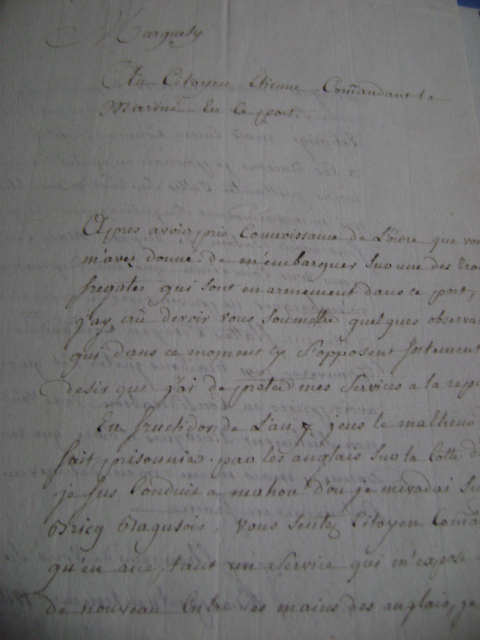 Marquesy
Au Citoyen Etienne Comandant la
Marine En ce port.
Apres avoir pris Connoissance de L'ordre que vou
m'avez donné de m'embarquer Sur une des troi
fregates qui sont en armement dans ce port,
j'ay crû devoir vous Soumettre quelques observa
qui dans ce moment cy S'opposent fortement
desir que j'ai de preter mes Services a la rep
En fructidor de L'an 7. jeus le malheur
fait prisonnier par les anglais Sur la Cotte d
je fus Conduit a mahon d'ou je mevadai Su
Bricq Ragusois, Vous Sentez Citoyen Coma
qu'en acceptant un Service qui m'expose
de nouveau Entre les mains des anglais, je